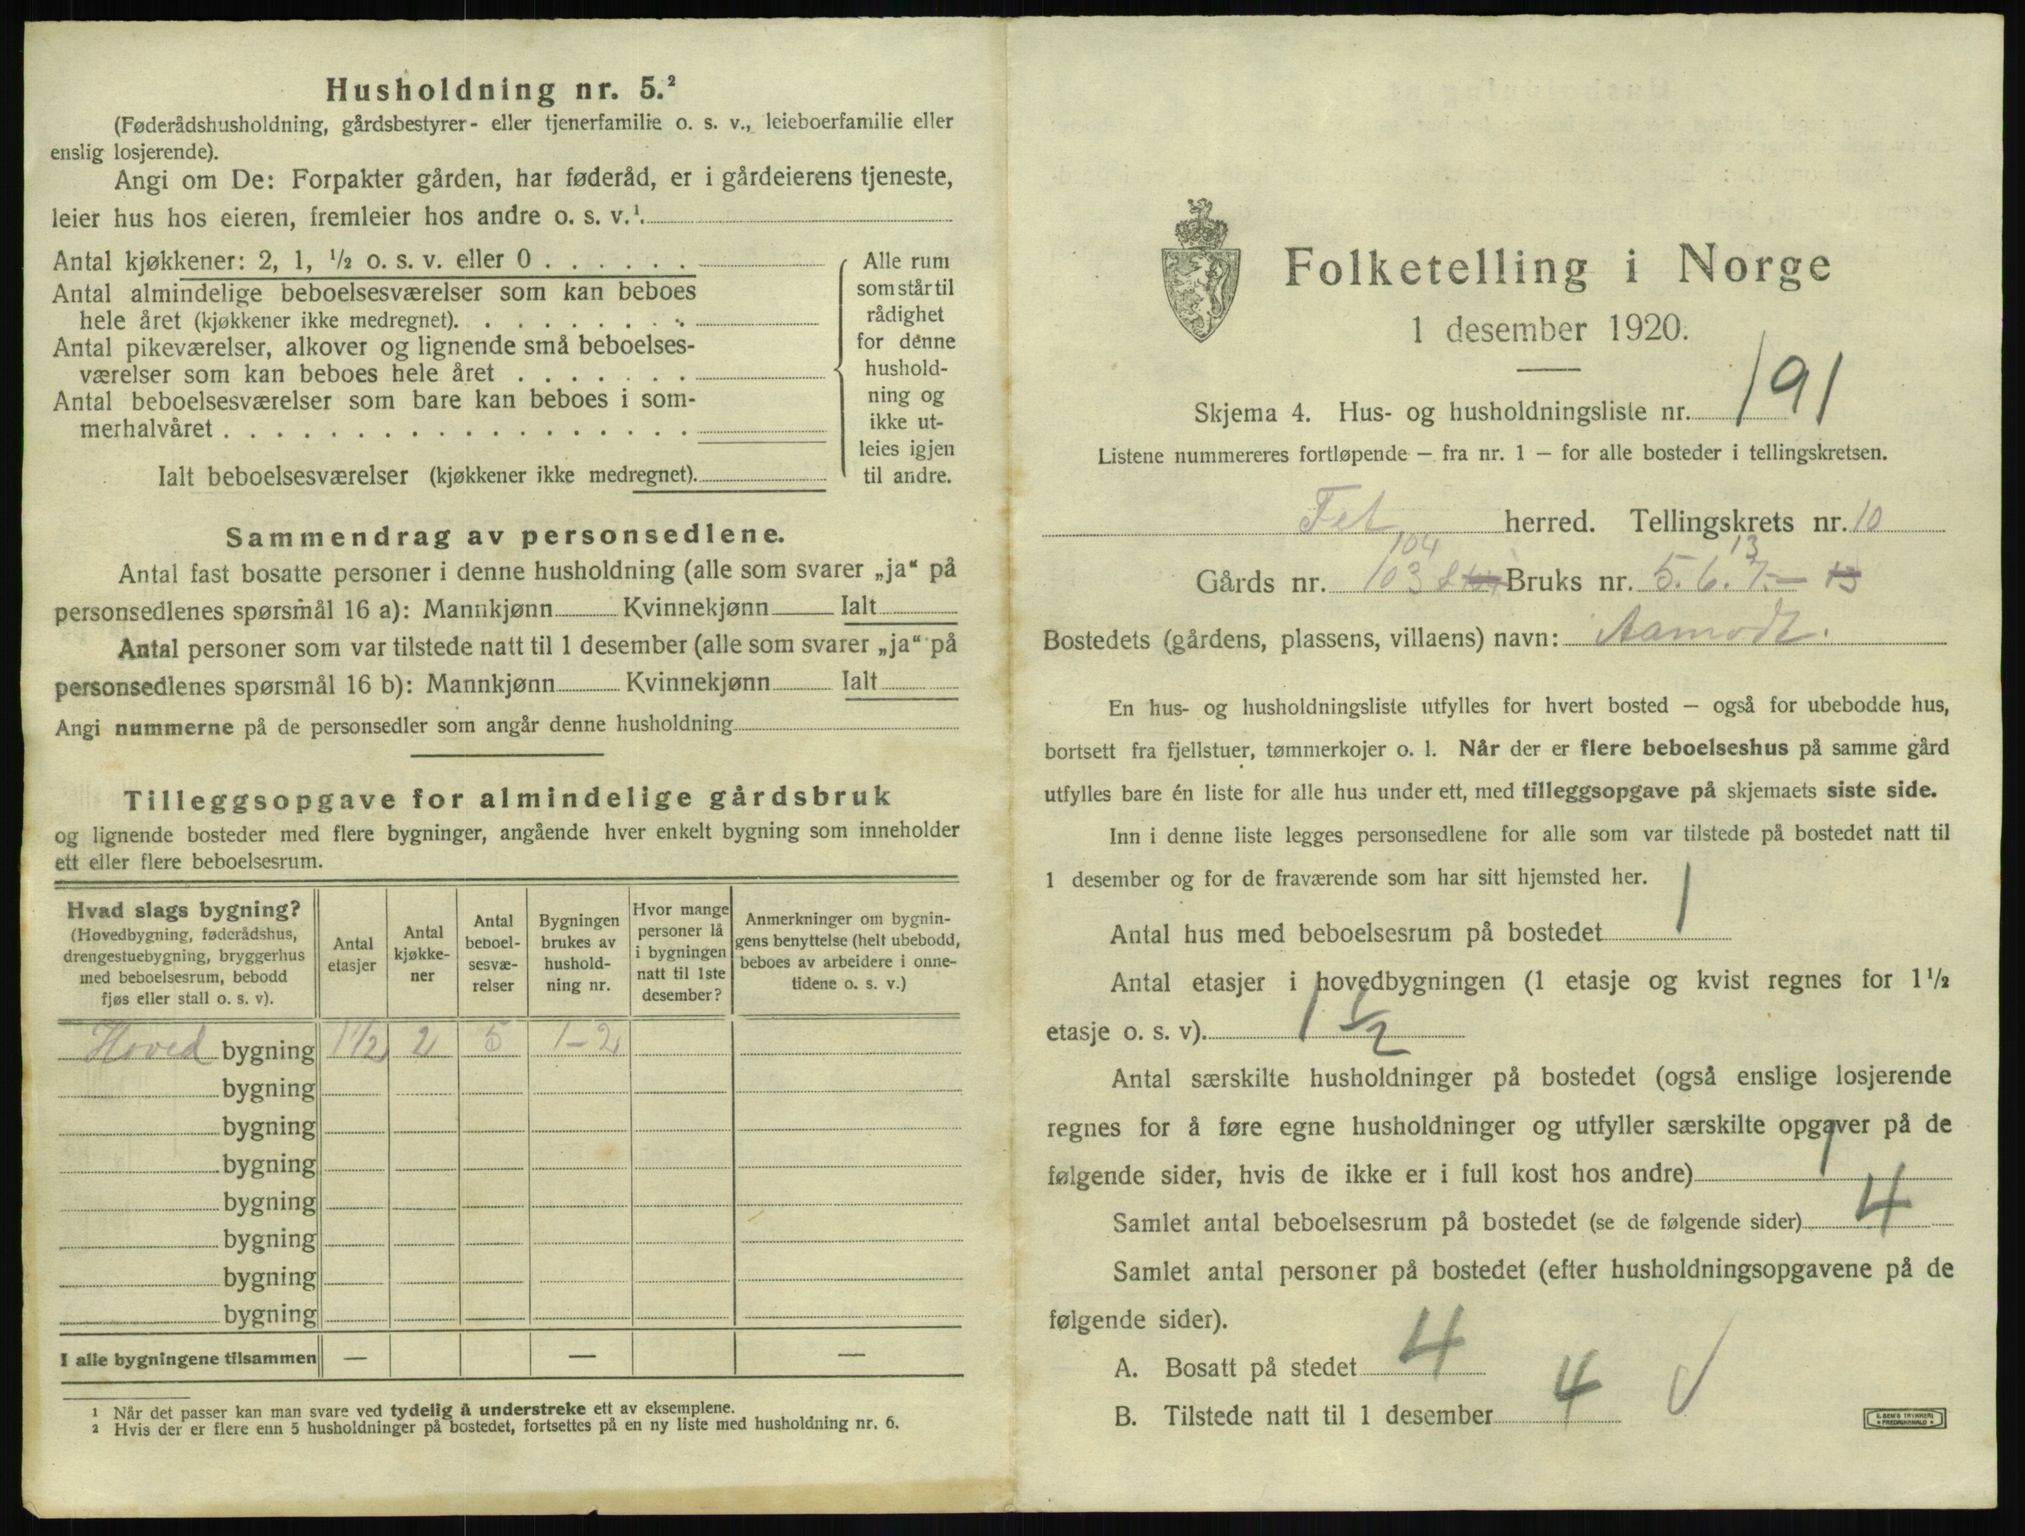 Husholdning nr. 5.²
(Føderådshusholdning, gårdsbestyrer- eller tjenerfamilie o. s. v., leieboerfamilie eller
enslig losjerende).
Angi om De: Forpakter gården, har føderåd, er i gårdeierens tjeneste,
leier hus hos eieren, fremleier hos andre o. s. v.¹.
Antal kjøkkener: 2, 1, ½ o. s. v. eller 0 . . . . . .
Antal almindelige beboelsesværelser som kan beboes
hele året (kjøkkener ikke medregnet). . . . . . . . .
Antal pikeværelser, alkover og lignende små beboelses-
værelser som kan beboes hele året . . . . . . .
Antal beboelsesværelser som bare kan beboes i som-
merhalvåret . . . . . . . . . . . . . . . . . .
Ialt beboelsesværelser (kjøkkener ikke medregnet).
Alle rum
som står til
rådighet
for denne
hushold-
ning og
ikke ut-
leies igjen
til andre.
Sammendrag av personsedlene.
Antal fast bosatte personer i denne husholdning (alle som svarer „ja“ på
personsedlenes spørsmål 16 a): Mannkjønn Kvinnekjønn Ialt
Antal personer som var tilstede natt til 1 desember (alle som svarer „ja“ på
personsedlenes spørsmål 16 b): Mannkjønn Kvinnekjønn Ialt
Angi nummerne på de personsedler som angår denne husholdning
Tilleggsopgave for almindelige gårdsbruk
og lignende bosteder med flere bygninger, angående hver enkelt bygning som inneholder
ett eller flere beboelsesrum.
Hvad slags bygning?
(Hovedbygning, føderådshus,
drengestuebygning, bryggerhus
med beboelsesrum, bebodd
fjøs eller stall o. s. v).
Antal
etasjer
Antal
kjøkke-
ner
Antal
beboel-
sesvæ-
relser
Bygningen
brukes av
hushold-
ning nr.
Hvor mange
personer lå
i bygningen
natt til 1ste
desember?
Anmerkninger om bygnin-
gens benyttelse (helt ubebodd,
beboes av arbeidere i onne-
tidene o. s. v.)
Hoved bygning 1½ 2 5 1-2
bygning
bygning
bygning
bygning
bygning
bygning
bygning
I alle bygningene tilsammen — — —
¹ Når det passer kan man svare ved tydelig å understreke ett av eksemplene.
² Hvis der er flere enn 5 husholdninger på bostedet, fortsettes på en ny liste med husholdning nr. 6.
Folketelling i Norge
1 desember 1920.
Skjema 4. Hus- og husholdningsliste nr. 191
Listene nummereres fortløpende — fra nr. 1 — for alle bosteder i tellingskretsen.
Fet herred. Tellingskrets nr. 10
104 13
Gårds nr. 103 Bruks nr. 5. 6. 7. — 13
Bostedets (gårdens, plassens, villaens) navn: Aamodt.
En hus- og husholdningsliste utfylles for hvert bosted — også for ubebodde hus,
bortsett fra fjellstuer, tømmerkojer o. l. Når der er flere beboelseshus på samme gård
utfylles bare én liste for alle hus under ett, med tilleggsopgave på skjemaets siste side.
Inn i denne liste legges personsedlene for alle som var tilstede på bostedet natt til
1 desember og for de fraværende som har sitt hjemsted her.
Antal hus med beboelsesrum på bostedet 1
Antal etasjer i hovedbygningen (1 etasje og kvist regnes for 1½
etasje o. s. v). 1½
Antal særskilte husholdninger på bostedet (også enslige losjerende
regnes for å føre egne husholdninger og utfyller særskilte opgaver på de
følgende sider, hvis de ikke er i full kost hos andre) 1
Samlet antal beboelsesrum på bostedet (se de følgende sider) 4
Samlet antal personer på bostedet (efter husholdningsopgavene på de
følgende sider).
A. Bosatt på stedet 4
B. Tilstede natt til 1 desember 4